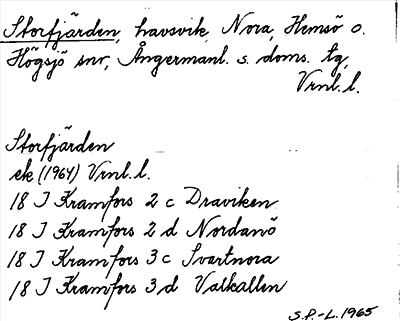 Storfjärden, havsvik, Nora, Hemsö o.
Högsjö snr, Ångermanl. s. doms. tg,
Vrnl. l.
Storfjärden
ek (1964) Vrnl. l.
18 I Kramfors 2 c Draviken
18 I Kramfors 2 d Nordanö
18 I Kramfors 3 c Svartnora
18 I Kramfors 3 d Valkallen
S.P.-L. 1965